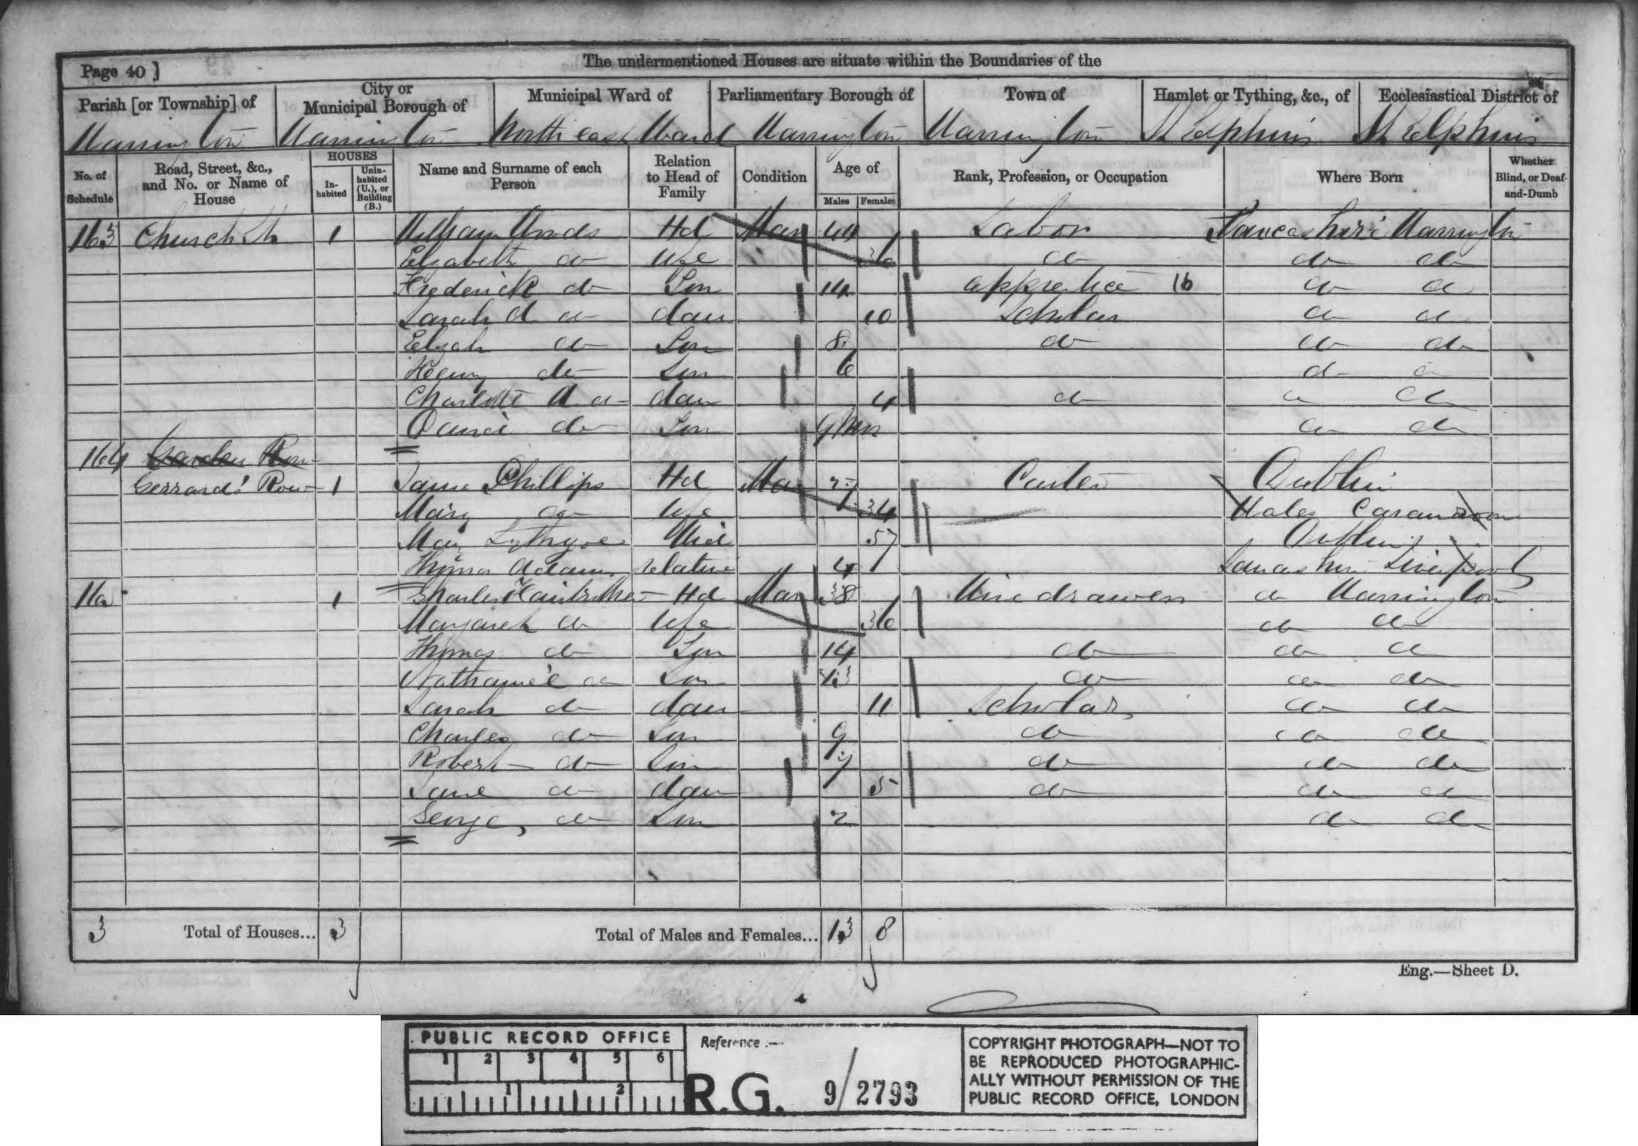 Page 40]
The undermentioned Houses are situate within the Boundaries of the
Parish [or Township] of City or Municipal Borough of Municipal Ward of Parliamentary Borough of Town of Hamlet or Tything, &c., of Ecclesiastical District of
Warrington Warrington North east Ward Warrington Warrington St Elphins St Elphins
No. of Schedule Road, Street, &c., and No. or Name of House HOUSES Inhabited Uninhabited (U.), or Building (B.) Name and Surname of each Person Relation to Head of Family Condition Age of Males Females Rank, Profession, or Occupation Where Born Whether Blind, or Deaf-and-Dumb
163 Church St 1 William Hd Mar 44 Labor Lancashire Warrington
Elizabeth do Wife 36 do do do
Frederick do Son 14 apprentice 16 do do
Sarah A do daur 10 Scholar do do
Elijah do Son 8 do do do
Henry do Son 6 do do
Charlott A do daur 4 do do do
Daniel do Son 9 Mon do do
164 Garden Row
Gerrards Row 1 James Phillips Hd Mar 27 Carter Dublin
Mary do Wife 34 Wales
Mary 57 Dublin
Thomas Adams relative 4 Lancashire Liverpool
165 1 Charles Hd Mar 38 Wire drawer do Warrington
Margaret do Wife 36 do do
Thomas do Son 14 do do do
Nathaniel do Son 13 do do do
Sarah do daur 11 Scholar do do
Charles do Son 9 do do do
Robert do Son 7 do do do
Jane do daur 5 do do do
George, do Son 2 do do
3 Total of Houses... 3 Total of Males and Females... 13 8
Eng.—Sheet D.
PUBLIC RECORD OFFICE
1 2 3 4 5 6
1 2
Reference :—
R.G. 9/2793
COPYRIGHT PHOTOGRAPH—NOT TO
BE REPRODUCED PHOTOGRAPHIC-
ALLY WITHOUT PERMISSION OF THE
PUBLIC RECORD OFFICE, LONDON